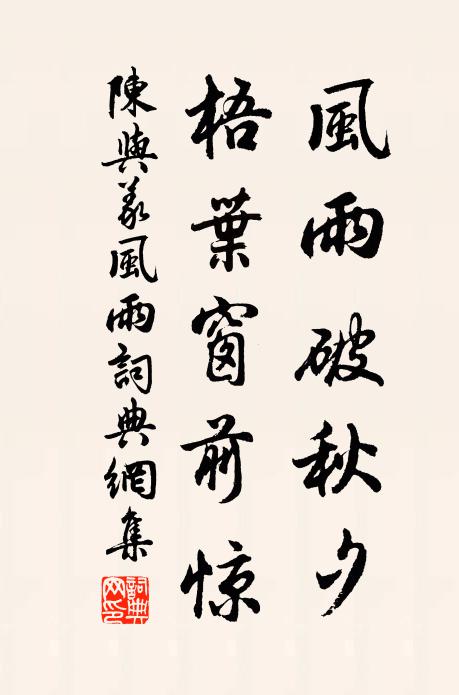 風雨破秋夕
梧葉窗前惊
陳與義風雨詞典網集
詞典网印